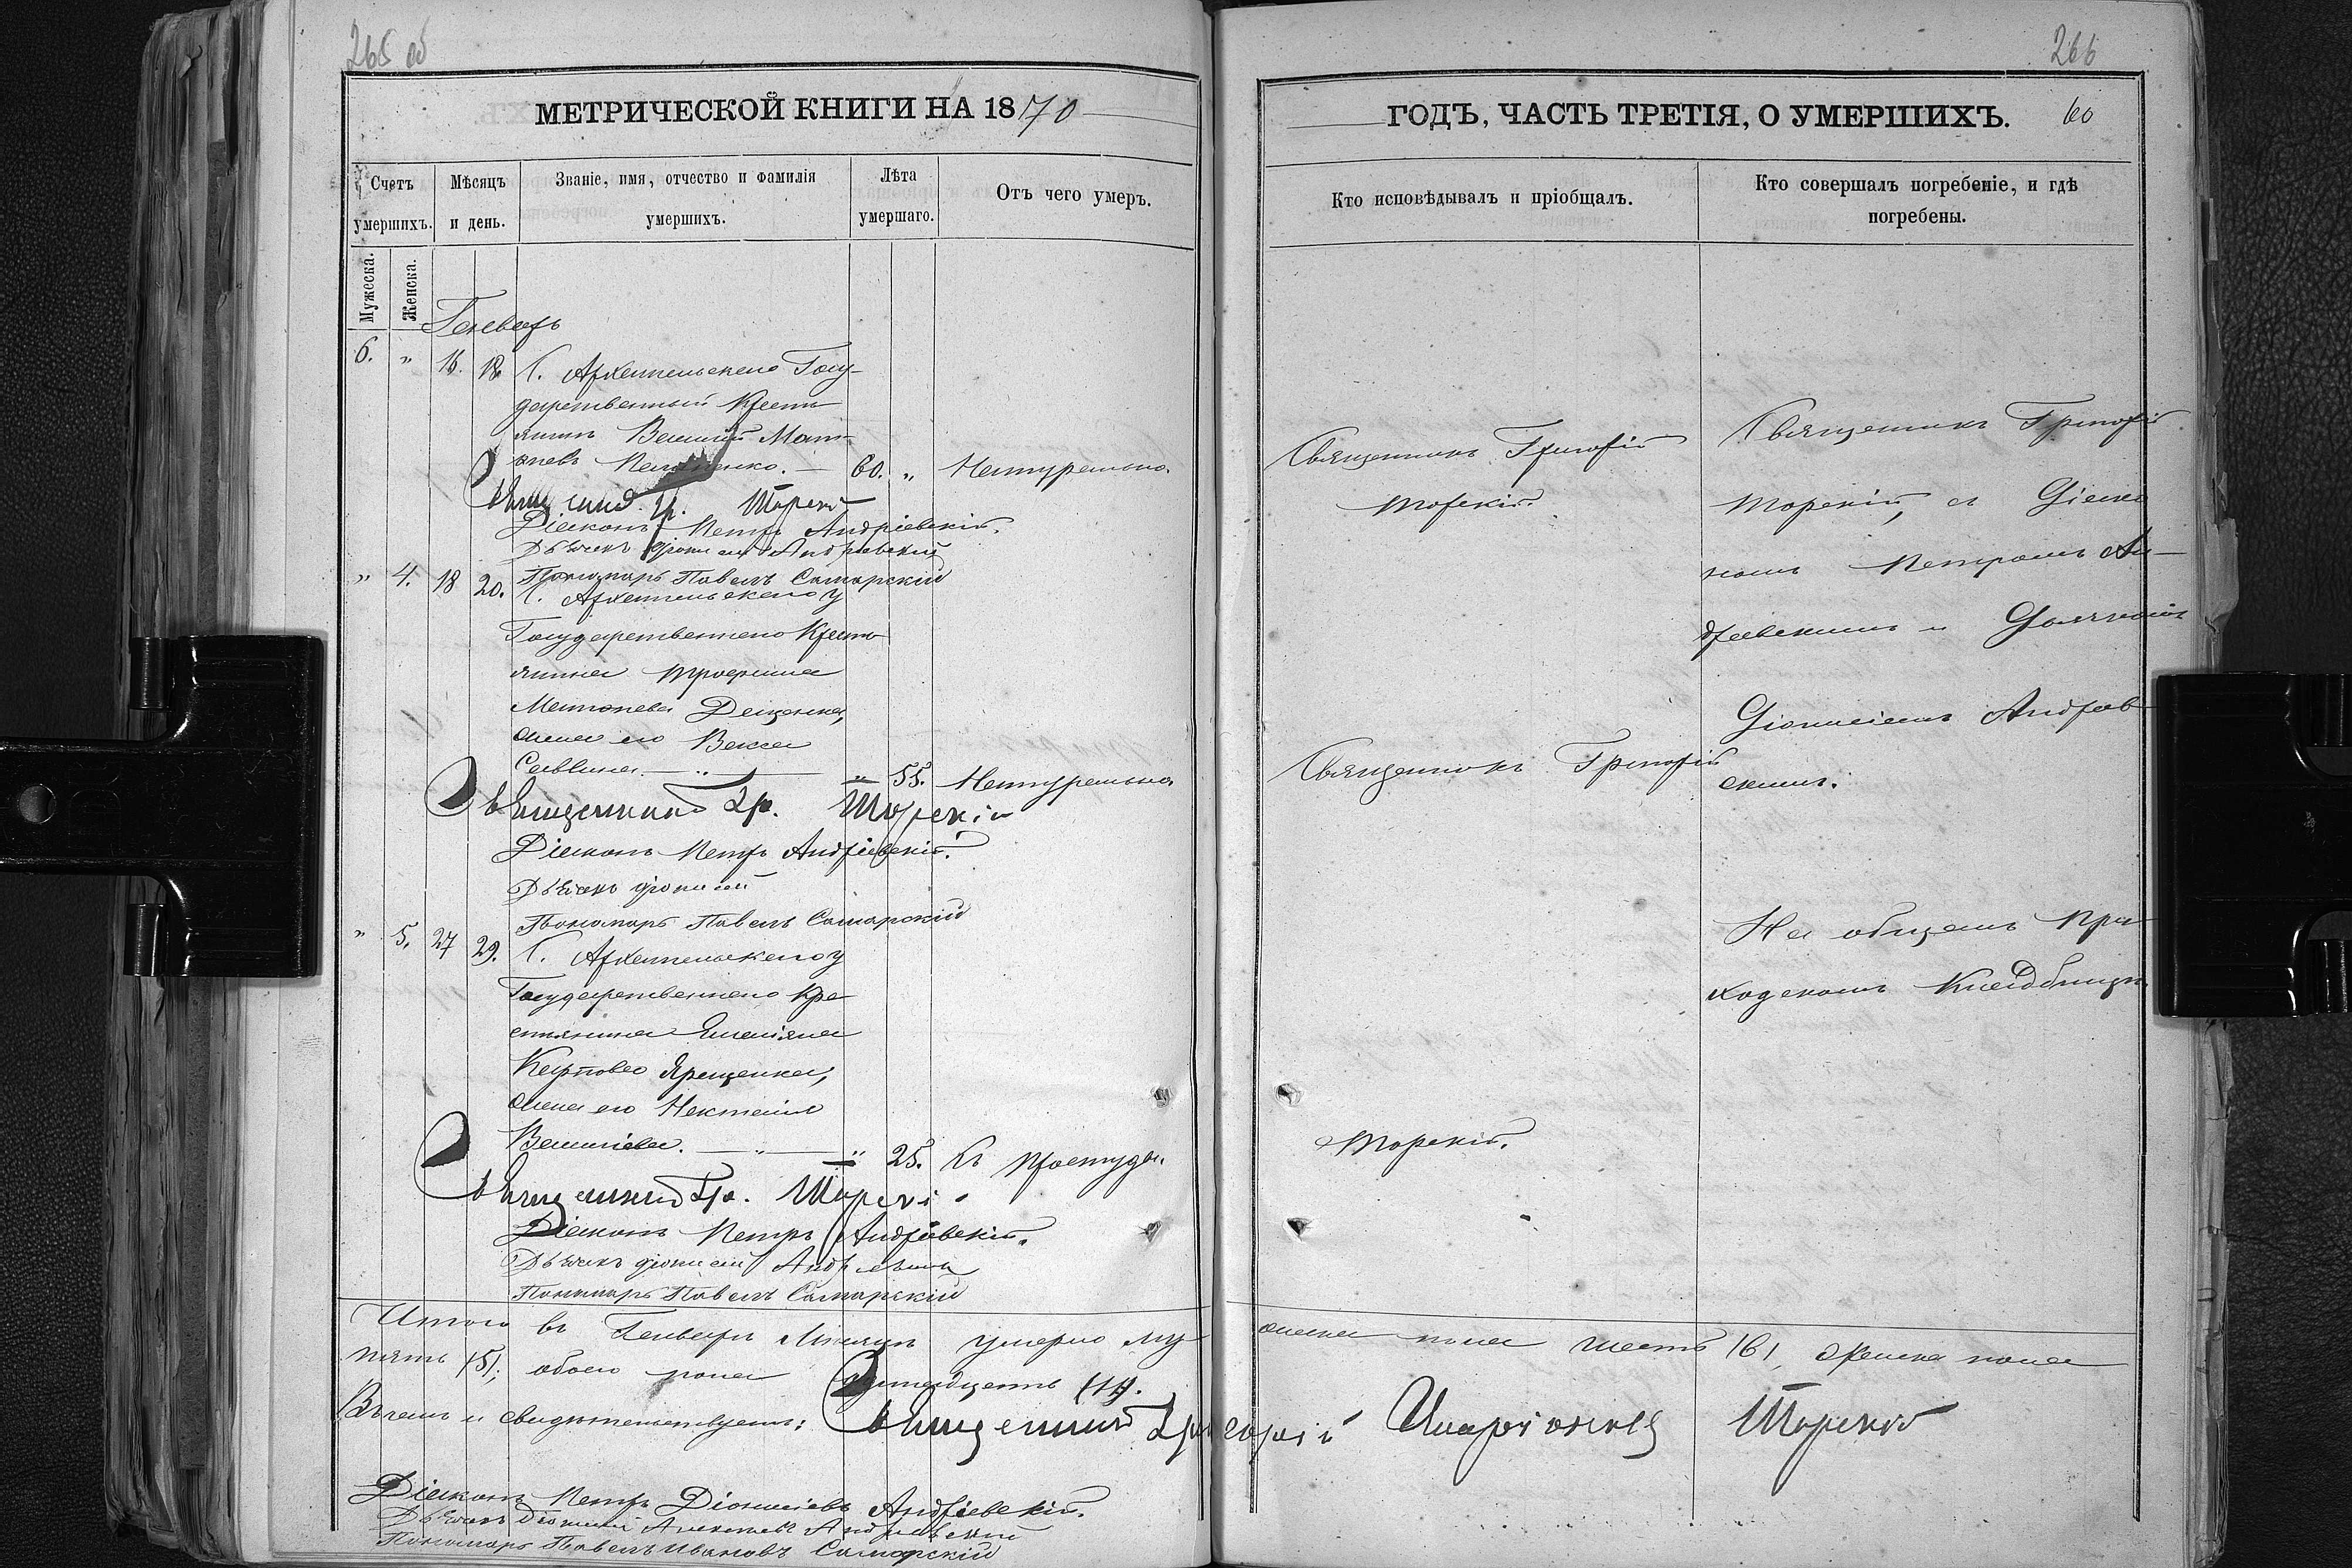 265 об
МЕТРИЧЕСКОЙ КНИГИ НА 1870
Счетъ умершихъ.
Мѣсяцъ и день.
Званіе, имя, отчество и фамилія умершихъ.
Лѣта умершаго.
Отъ чего умеръ.
Мужеска.
Женска.
Генварь
6. " 16. 18. С. Архангельскаго Госу-
дарственный Кресть
янинъ Василій Мат-
ѳіевъ
60. " Натурально.
Священникъ Гр. Торскій
Діаконъ Петръ Андріевскій.
Дьячекъ Діонисій Андріевскій
Пономарь Павелъ Самарскій
" 4. 18 20. С. Архангельскаго у
Государственнаго Кресть
янина Трофима
Матѳіева
жена его Васса
Саввина. " 55. Натурально
Священникъ Гр. Торскій
Діаконъ Петръ Андріевскій.
Дьячекъ Діонисій
Пономарь Павелъ Самарскій
" 5. 27 29. С. Архангельскаго у
Государственнаго Кре
стьянина Емеліяна
Карпова Ярещенка,
жена его
Василіева. " 25. Съ простуды.
Священникъ Гр. Торскій
Діаконъ Петръ Андріевскій.
Дьячекъ Діонисій Андріевскій
Пономарь Павелъ Самарскій
Итого въ Генварѣ Мѣсяцѣ умерло му
пять (5), обоего пола одинадцать (11).
Въ чемъ и свидѣтельствуемъ: Священникъ Григорій
Діаконъ Петръ Діонисіевъ Андріевскій.
Дьячекъ Діонисій Алексѣевъ Андріевскій
Пономарь Павелъ Ивановъ Самарскій
266
ГОДЪ, ЧАСТЬ ТРЕТІЯ, О УМЕРШИХЪ.
60
Кто исповѣдывалъ и пріобщалъ.
Кто совершалъ погребеніе, и гдѣ погребены.
Священникъ Григорій
Торскій.
Священникъ Григорій
Торскій.
Священникъ Григорій
Торскій, съ Діако
номъ Петромъ Ан-
дріевскимъ и Дьячкомъ
Діонисіемъ Андріев
скимъ.
На общемъ При
ходскомъ Кладбищѣ.
жеска пола шесть (6), женска пола
Иларіоновъ Торскій